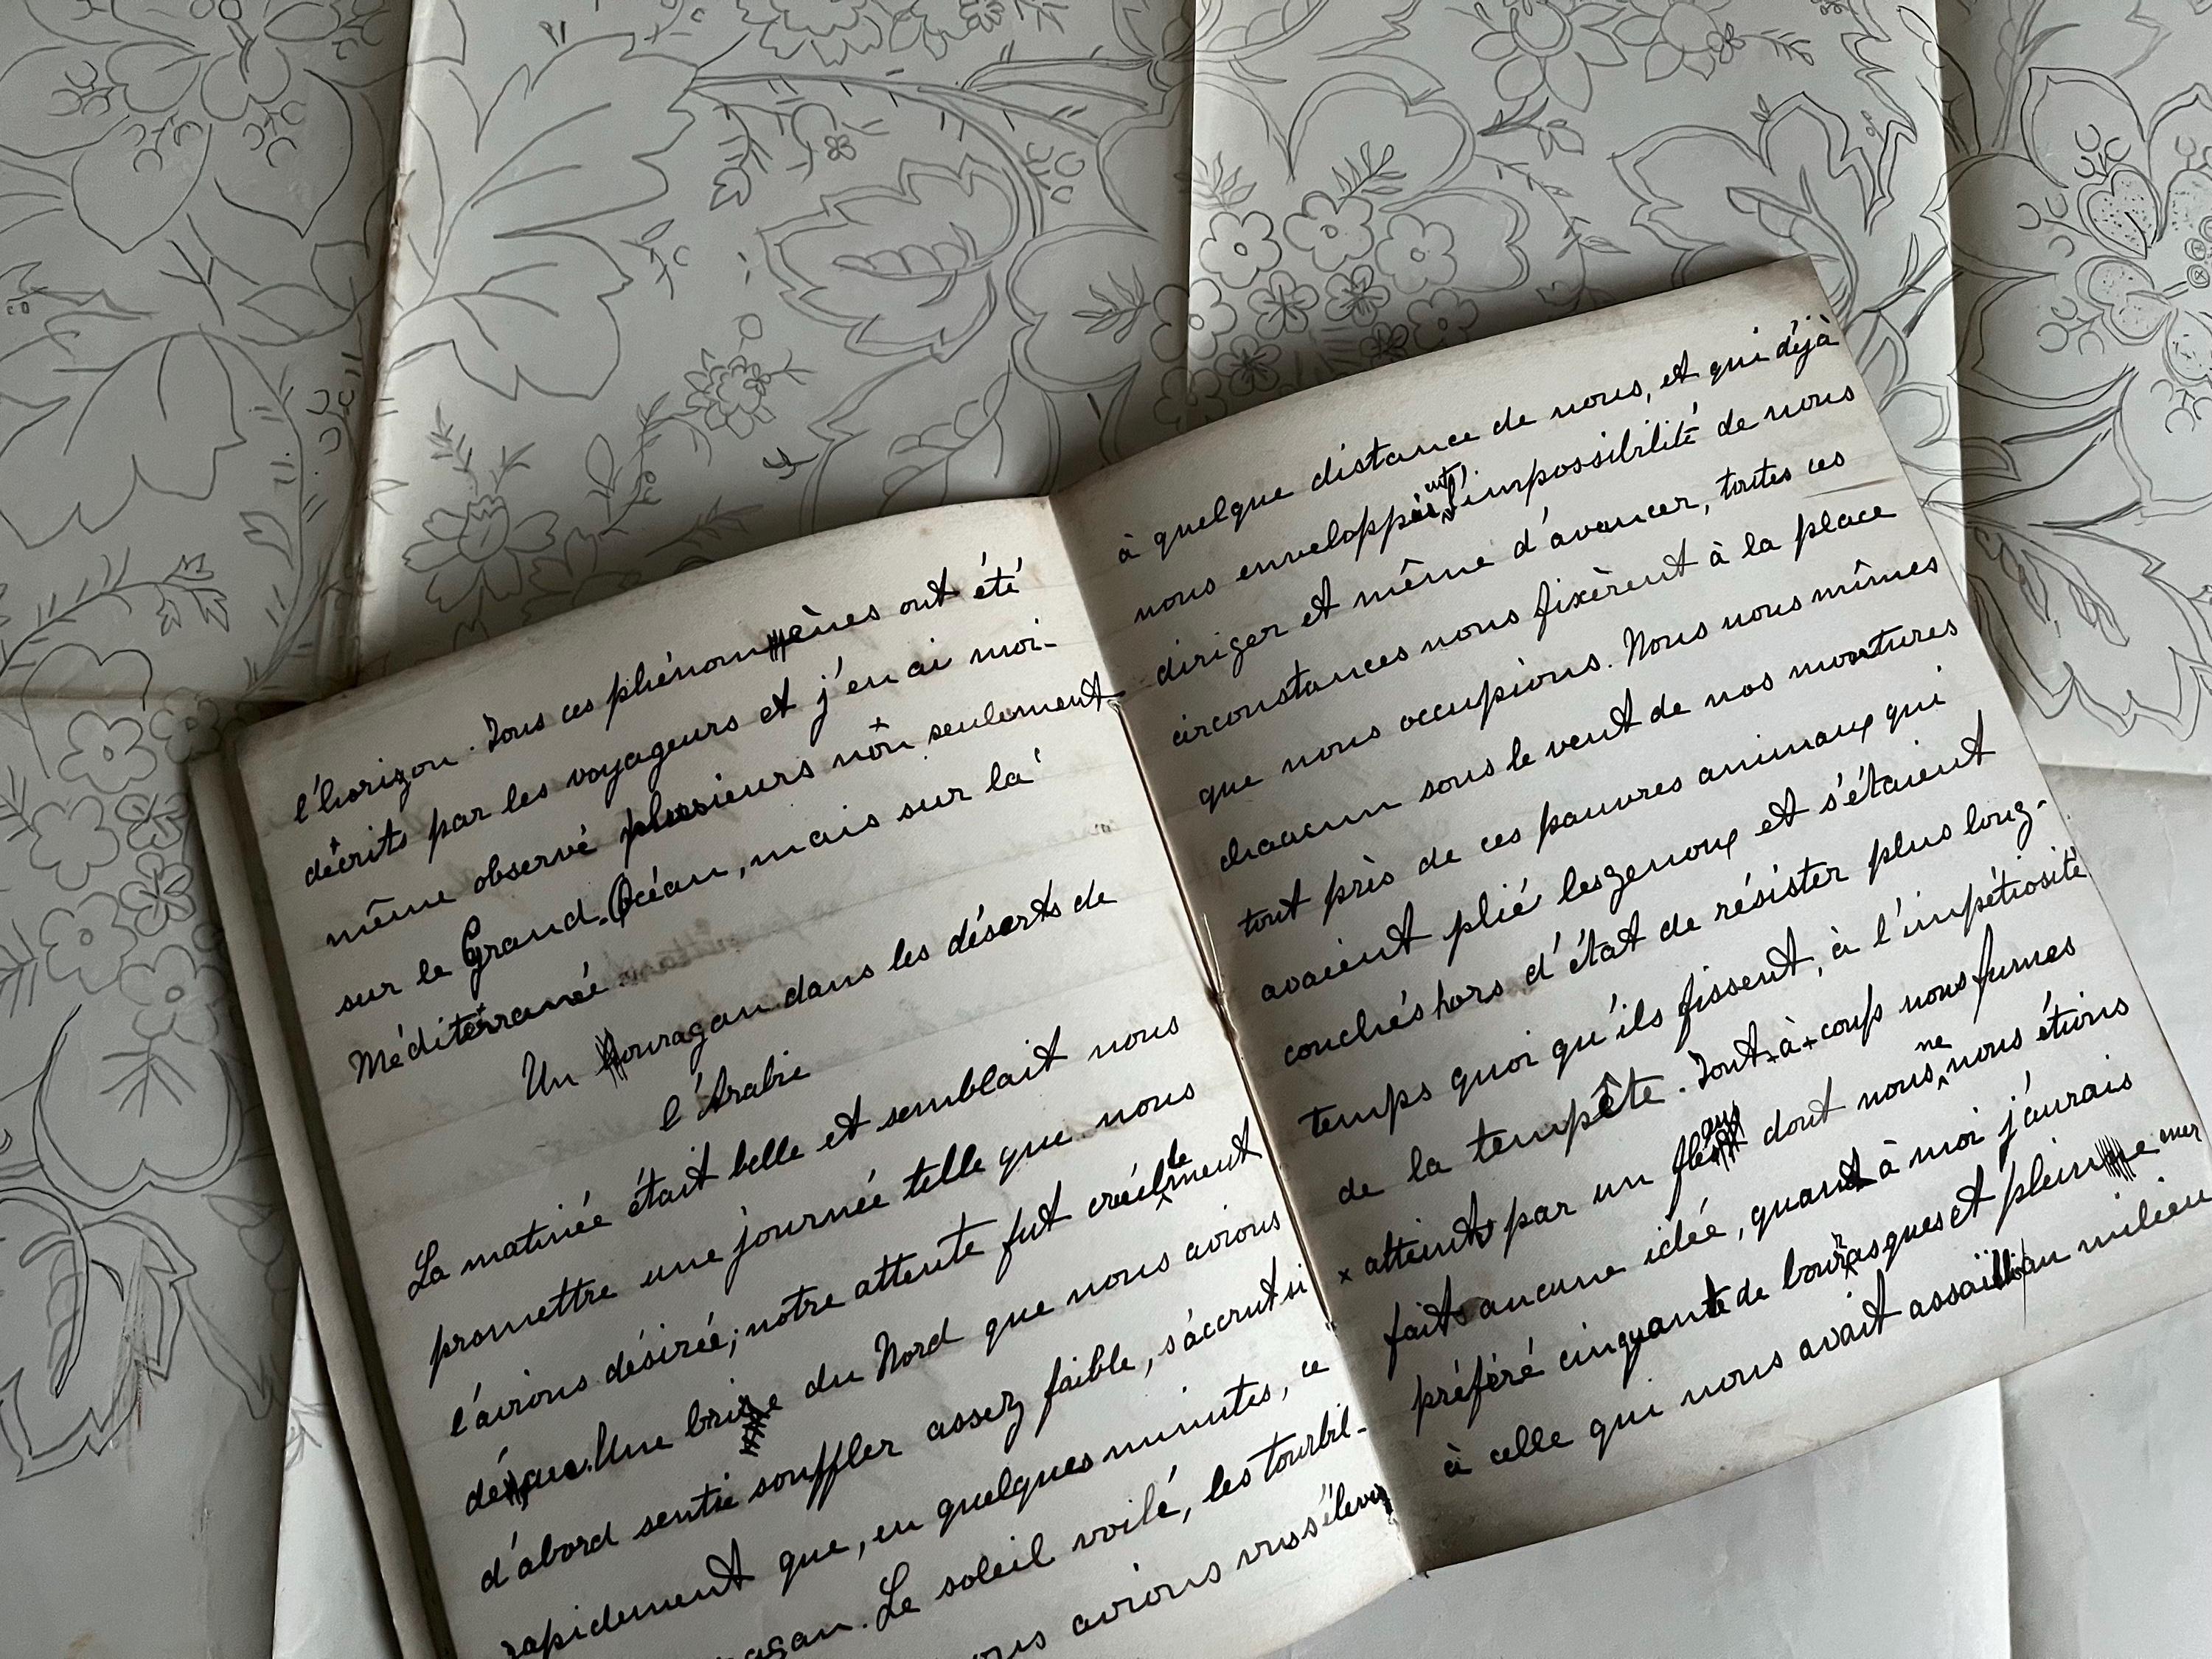 l'horizon. Tous ces phénomènes ont été
décrits par les voyageurs et j'en ai moi-
même observé plusieurs non seulement
sur le Grand-Océan, mais sur la
Méditerranée.
Un ouragan dans les déserts de
l'Arabie
La matinée était belle et semblait nous
promettre une journée telle que nous
l'avions désirée; notre attente fut cruellement
déçue. Une brise du Nord que nous avions
d'abord sentie souffler assez faible, s'accrut si
rapidement que, en quelques minutes, ce
ragan. Le soleil voilé, les tourbil-
avions vus s'élever
à quelque distance de nous, et qui déjà
nous enveloppaient, l'impossibilité de nous
diriger et même d'avancer, toutes ces
circonstances nous fixèrent à la place
que nous occupions. Nous nous mîmes
chacun sous le vent de nos montures
tout près de ces pauvres animaux qui
avaient plié les genoux et s'étaient
couchés hors d'état de résister plus long-
temps quoi qu'ils fissent, à l'impétiosité
de la tempête. Tout-à-coup nous fumes
x atteints par un dont nous ne nous étions
faits aucune idée, quant à moi j'aurais
préféré cinquante de bourrasques et pleine mer
à celle qui nous avait assailli au milieu